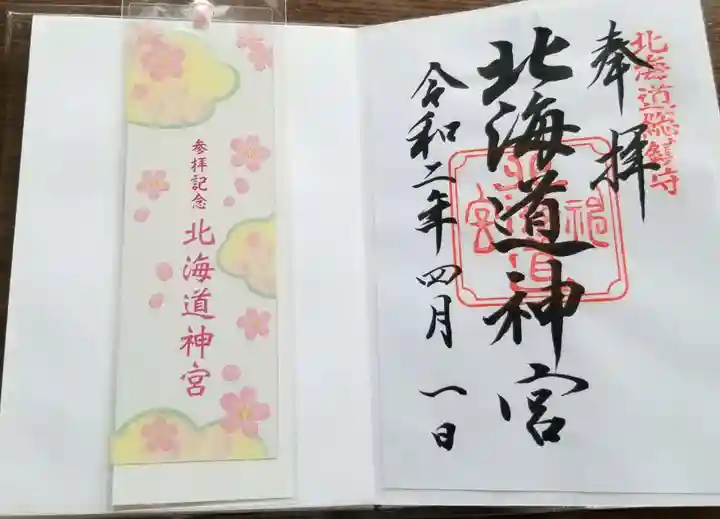 北海道總鎮守
奉拝
北海道神宮
北海道神宮
令和二年四月一日
参拝記念
北海道神宮